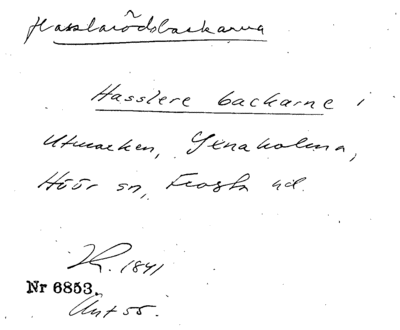 Hasslarödsbackarna
Hasslere backarne i
Utmarken, Yxnaholma,
Höör sn, Frosta hd.
K. 1841
Nr 6853.
Ant 55.